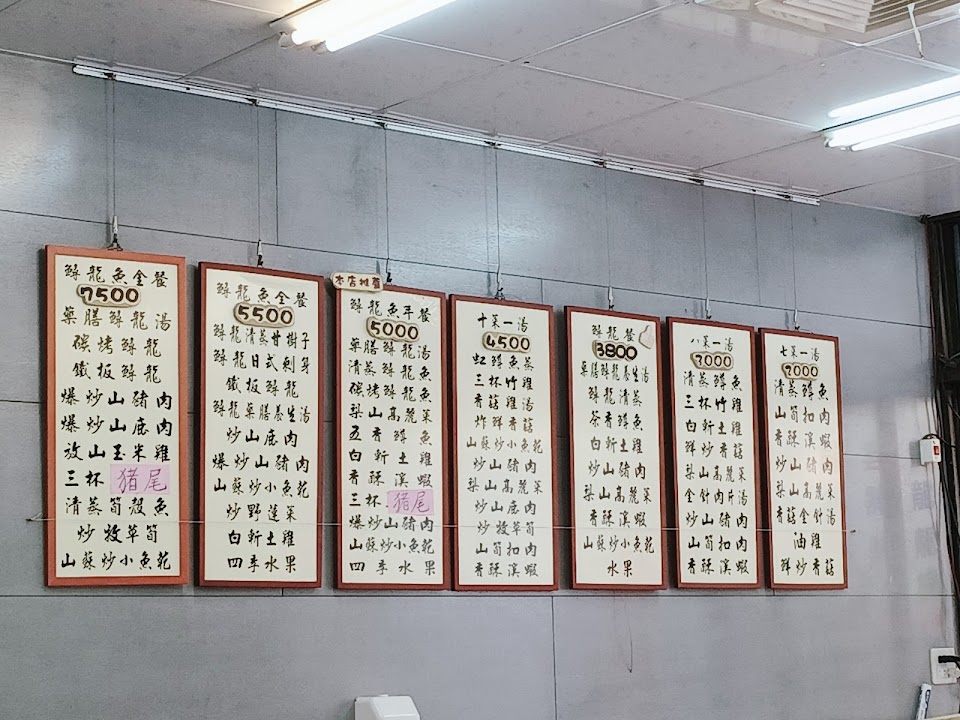 鱘龍魚全餐
7500
藥膳鱘龍湯
碳烤鱘龍
鐵板鱘龍
爆炒山豬肉
爆炒山底肉
放山玉米雞
三杯猪尾
清蒸筍殼魚
炒牧草筍
山蘇炒小魚乾
鱘龍魚全餐
5500
鱘龍清蒸甘樹子
鱘龍日式刺身
鐵板鱘龍
鱘龍藥膳養生湯
炒山底肉
爆炒山豬肉
山蘇炒小魚乾
炒野蓮菜
白斬土雞
四季水果
本店推薦
鱘龍魚半餐
5000
藥膳鱘龍湯
清蒸鱘龍魚
碳烤鱘龍魚
梨山高麗菜
五香鱒魚
白斬土雞
香酥溪蝦
三杯猪尾
爆炒山豬肉
山蘇炒小魚乾
四季水果
十菜一湯
4500
虹鱒魚蒸
三杯竹雞
香菇雞湯
炸鮮香菇
山蘇炒小魚乾
炒山豬肉
梨山高麗菜
炒山底肉
炒牧草筍
山筍扣肉
香酥溪蝦
鱘龍餐
3800
藥膳鱘龍養生湯
鱘龍清蒸
茶香鱒魚
白斬土雞
炒山豬肉
梨山高麗菜
香酥溪蝦
山蘇炒小魚乾
水果
八菜一湯
清蒸鱒魚
三杯竹雞
白斬土雞
鮮炒香菇
梨山高麗菜
金針肉片湯
炒山豬肉
山筍扣肉
香酥溪蝦
七菜一湯
2000
清蒸鱒魚
山筍扣肉
香酥溪蝦
炒山豬肉
梨山高麗菜
香菇金針湯
油雞
鮮炒香菇